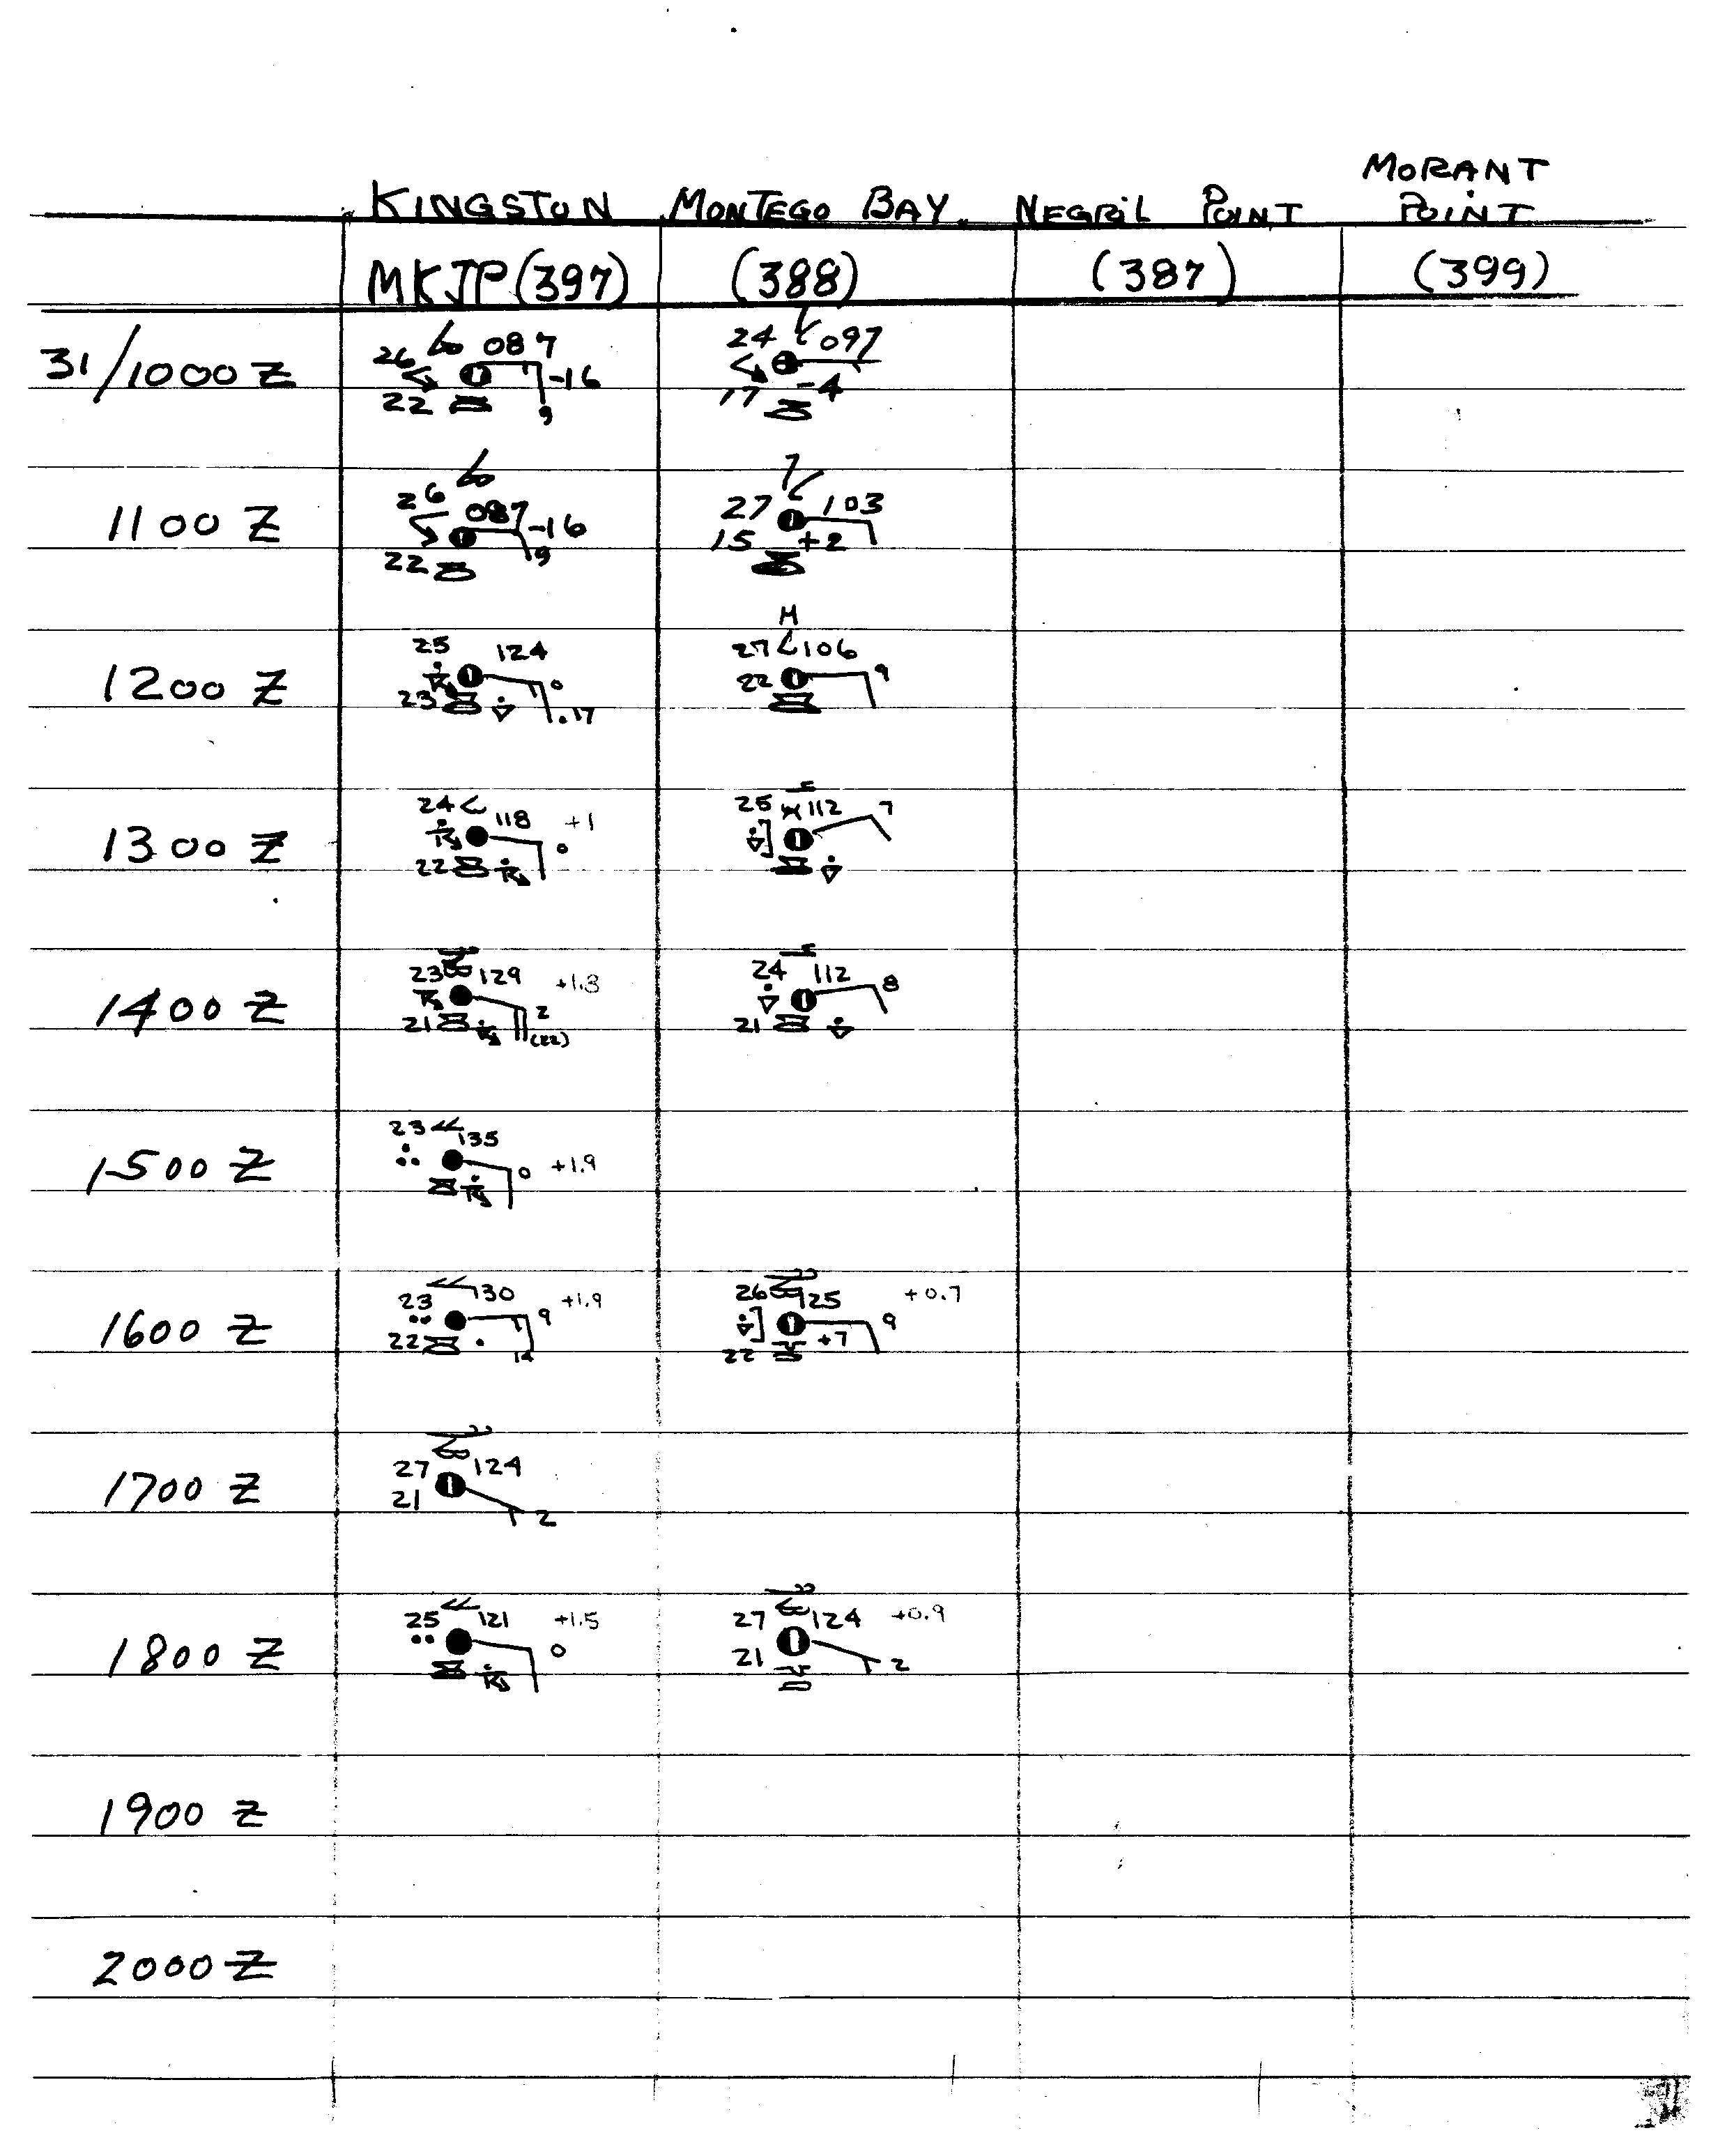 MORANT
KINGSTON MONTEGO BAY NEGRIL POINT POINT
MKJP (397) (388) (387) (399)
31/1000 Z
26 087 -16 22 9
24 097 -4 17
1100 Z
26 087 -16 22 9
7 27 103 15 +2
1200 Z
25 124 0 23 .17
M 27 106 22 9
1300 Z
24 118 +1 0 22
25 112 7
1400 Z
23 129 +1.3 2 21 (22)
24 112 8 21
1500 Z
23 135 0 +1.9
1600 Z
23 130 9 +1.9 22 14
26 125 +0.7 9 +7 22
1700 Z
27 124 21 2
1800 Z
25 121 +1.5 0
27 124 +0.9 21 2
1900 Z
2000 Z